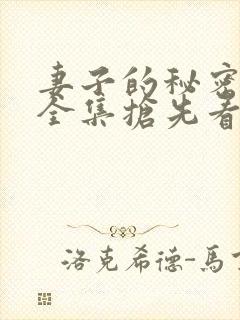 妻子的秘密
全集搶先看
洛克希德-馬